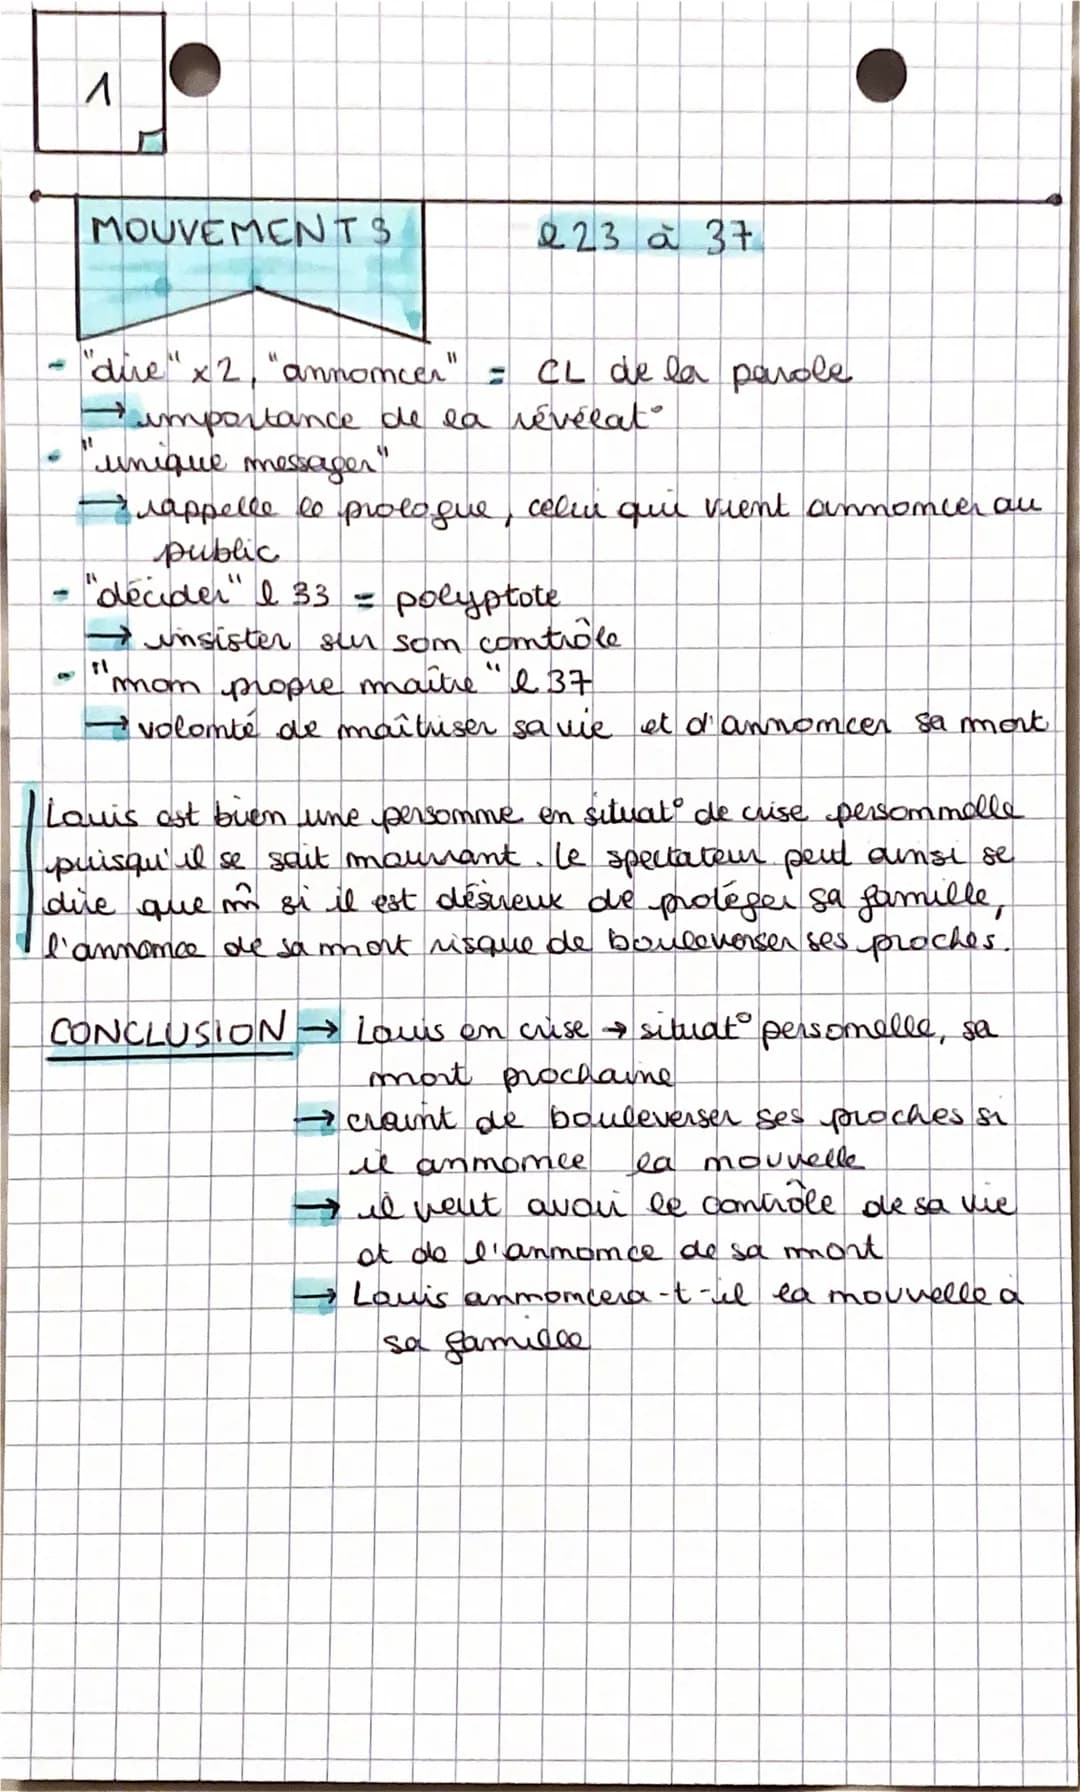 1
MOUVEMENT 3 l 23 à 37
- "dire" x2, "annoncer" = CL de la parole
→ importance de la révélat°
- "unique messager"
→ rappelle le prologue, celui qui vient annoncer au
public
- "décider" l 33 = polyptote
→ insister sur son contrôle
- "mon propre maître" l 37
→ volonté de maîtriser sa vie et d'annoncer sa mort
Louis est bien une personne en situat° de crise personnelle
puisqu'il se sait mourant. Le spectateur peut ainsi se
dire que m̂ si il est désireux de protéger sa famille,
l'annonce de sa mort risque de bouleverser ses proches.
CONCLUSION → Louis en crise → situat° personelle, sa
mort prochaine
→ craint de bouleverser ses proches si
il annonce la nouvelle
→ il veut avoir le contrôle de sa vie
et de l'annonce de sa mort
→ Louis annoncera-t-il la nouvelle à
sa famille